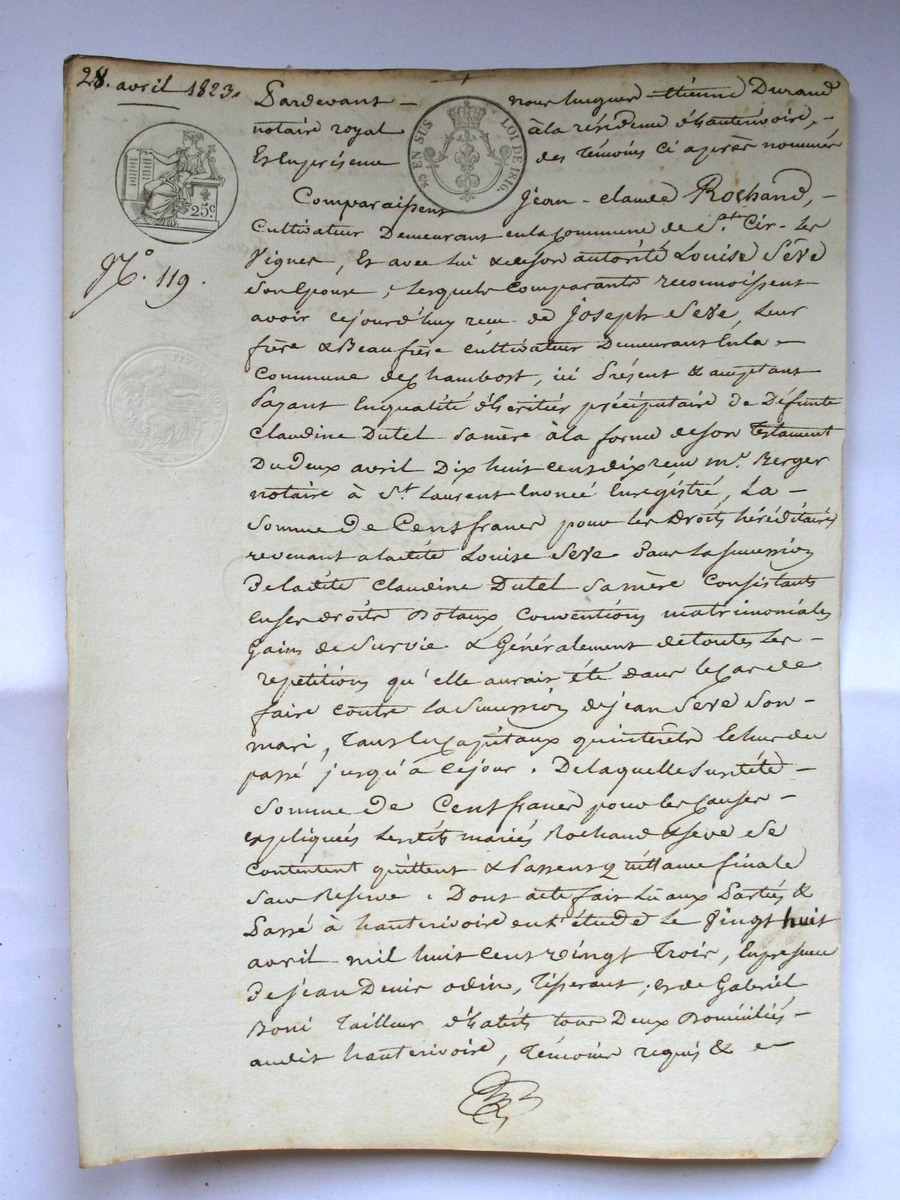 28. avril 1823.
Pardevant nous Jacques étienne Durand
notaire royal à la résidence d'hauterivoire,
Et en présence des témoins ci après nommés
Comparaissent Jean-claude Rochand,
EN SUS
LOI DE 1816
25c
N.° 119.
Cultivateur Demeurant en la Commune de St. Cir-les
Vignes, Et avec lui & de son autorité Louise Séve
Son Epouse, lesquels comparants reconnoissent
avoir cejourd'huy reçu de Joseph Seve, leur
frère & Beaufrère cultivateur Demeurant En la
Commune de Chambost, ici Présent & acceptant
Payant En qualité d'héritier préciputaire de Défunte
Claudine Dutel Sa mère à la forme de son Testament
Du deux avril Dix huit cent dix reçu me. Berger
notaire à St. Laurent Enoncé Enregistré, La
Somme De Cent francs pour les droits héréditaires
revenant a ladite Louise Seve dans la succession
De ladite Claudine Dutel Sa mère Consistants
En ses droits Dotaux Conventions matrimoniales
Gains de Survie & Généralement de toutes les
repetitions qu'elle aurait été dans le Cas de
faire contre la Succession de jean Seve Son
mari, Tant En Capitaux qu'intérêts Echus du
passé jusqu'à cejour. De laquelle Susdite
Somme De Cent francs pour les Causes
expliquées Lesdits mariés Rochand & Seve Se
Contentent quittent & Passent quittance finale
Sans Reserve. Dont acte fait Lu aux Parties &
Passé à hauterivoire en l'étude Le Vingt huit
avril mil huit cent vingt trois, En presence
De jean Denis odin, Tisserant, et de Gabriel
Boni Tailleur d'habits tous Deux Domiciliés
audit hauterivoire, Témoins requis & en